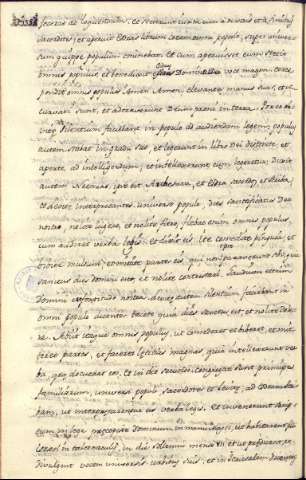 secretis
sacerdotis, et aperuit Esdras coram omni populo, super univer
sum quippe populum eminebat: et cum aperuisset eum stetit
omnis populus et benedixit Esdras Domino voce magna: et res
pondit omnis populus Amen Amen: elevans manus suas, et
curvati sunt, et adoraverunt Deum proni in terra. Porro
silentium faciebant in populo ad audiendam legem, populus
autem stabat in gradu suo, et legerunt in libro Dei distincte, et
aperte ad intelligendum; et intellexerunt cum legeretur, dixit
autem Nehemias, et Esdras sacerdos, et scriba,
et Levitae interpretantes universo populo, dies sanctificatus Deo
nostro, nolite lugere, et nolite flere, flebat enim omnis populus,
cum audiret verba legis, et dixit eis, ite comedite pinguia, et
bibite mulsum, et mittite partes eis, qui non praeparaverunt sibi, quia
sanctus dies Domini est, et nolite contristari. Gaudium etenim
Domini est fortitudo nostra, Levitae autem silentium faciebant in
omni populo dicentes tacete quia dies sanctus est, et nolite dole
re. Abiit itaque omnis populus, ut comederet et biberet, et mit
teret partes, et faceret laetitiam magnam, quia intellexerunt ver
ba, quae docuerat eos. Et in die secundo congregati sunt principes
familiarum, universus populus sacerdotes et Levitae, ad Esdram scri
bam, ut interpretaretur eis verba legis. Et invenerunt scrip
tum in lege praecepisse Dominum in manu Moysi, ut habitent filii
Israel in tabernaculis, in die solemni mense VII, et ut praedicent, et
divulgent vocem universis urbibus suis, et in Jerusalem dicentes